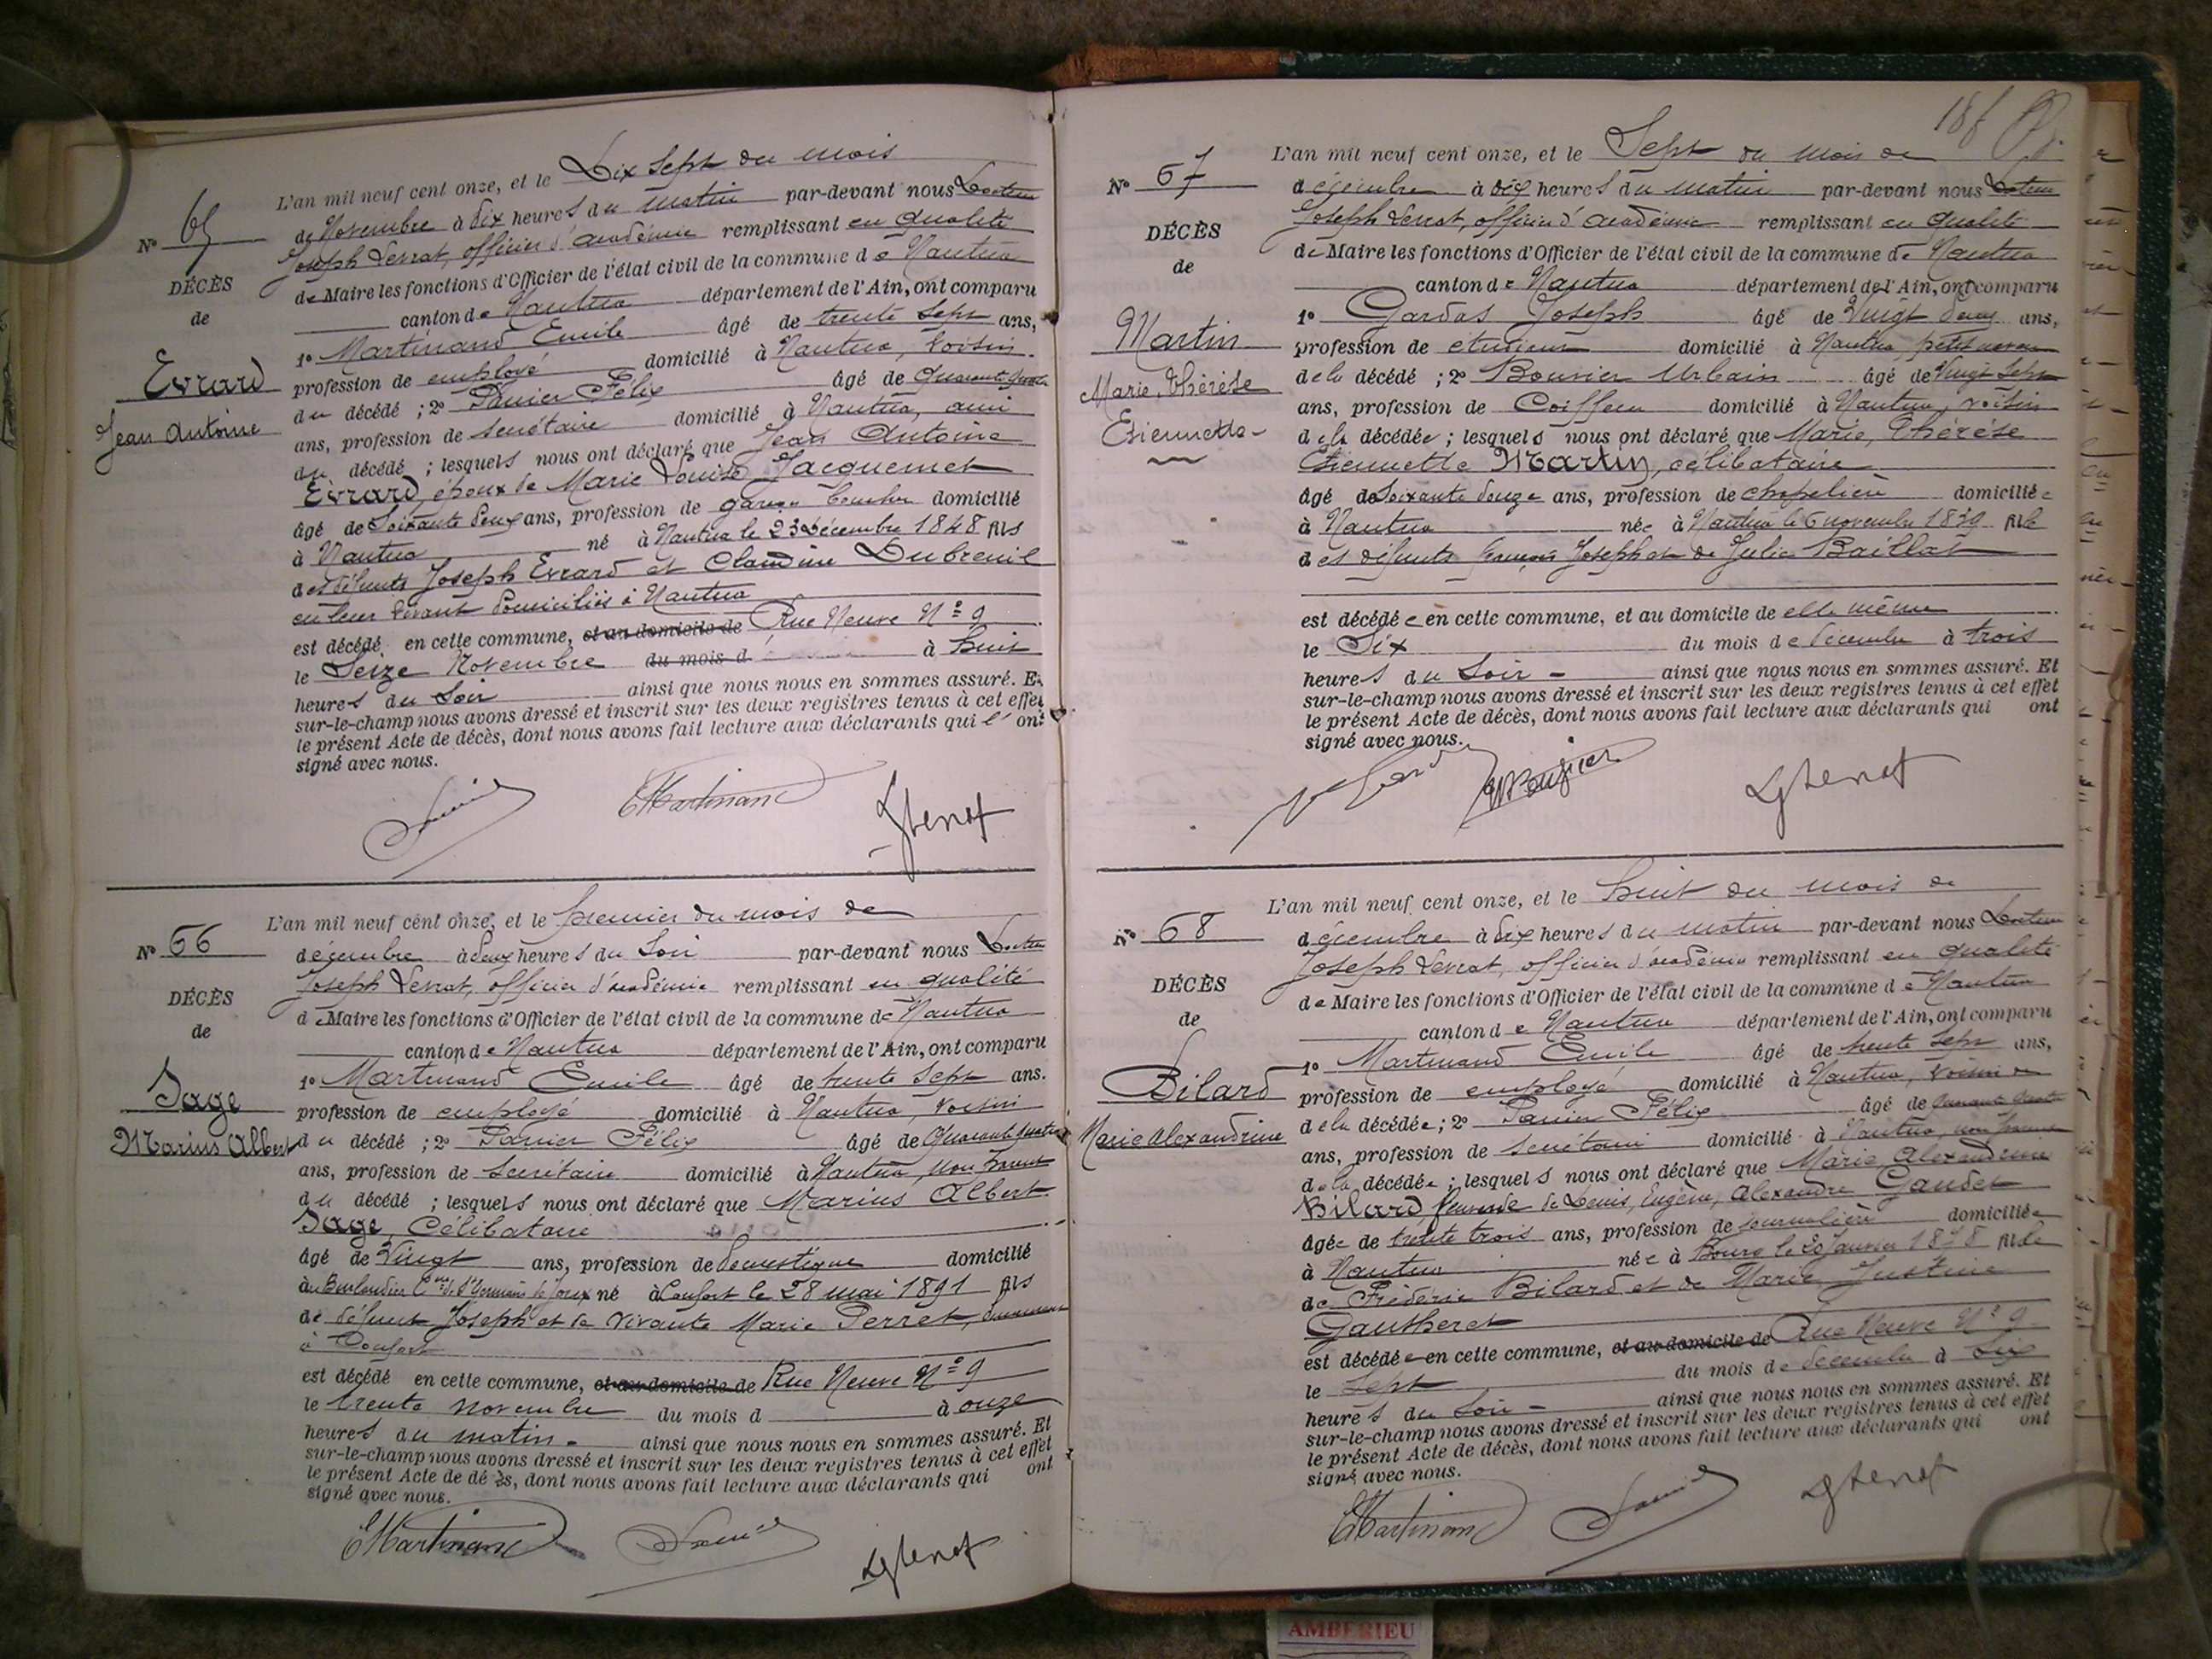 N° 65
DÉCÈS
de
Evrard
Jean Antoine
L'an mil neuf cent onze, et le Dix Sept du mois
de Novembre à dix heures du matin par-devant nous Docteur
Joseph Levrat, officier d'académie remplissant en qualité
de Maire les fonctions d'Officier de l'état civil de la commune de Nantua
canton de Nantua département de l'Ain, ont comparu
1° Martinand Emile âgé de trente sept ans,
profession de employé domicilié à Nantua, voisin
du décédé ; 2° Panier Félix âgé de quarante quatre
ans, profession de secrétaire domicilié à Nantua, ami
du décédé ; lesquels nous ont déclaré que Jean Antoine
Evrard, époux de Marie Louise Jacquemet
âgé de soixante deux ans, profession de garçon boucher domicilié
à Nantua né à Nantua le 23 décembre 1848 fils
des défunts Joseph Evrard et Claudine Dubreuil
en leur vivant domiciliés à Nantua
est décédé en cette commune, et au domicile de Rue Neuve N° 9
le Seize Novembre du mois d à huit
heures du soir ainsi que nous nous en sommes assuré. Et
sur-le-champ nous avons dressé et inscrit sur les deux registres tenus à cet effet
le présent Acte de décès, dont nous avons fait lecture aux déclarants qui l'ont
signé avec nous.
EMartinand
N° 66
DÉCÈS
de
Sage
Marius Albert
L'an mil neuf cent onze, et le premier du mois de
décembre à deux heures du soir par-devant nous Docteur
Joseph Levrat, officier d'académie remplissant en qualité
de Maire les fonctions d'Officier de l'état civil de la commune de Nantua
canton de Nantua département de l'Ain, ont comparu
1° Martinand Emile âgé de trente sept ans.
profession de employé domicilié à Nantua, voisin
du décédé ; 2° Panier Félix âgé de quarante quatre
ans, profession de secrétaire domicilié à Nantua, non parent
du décédé ; lesquels nous ont déclaré que Marius Albert
Sage, Célibataire
âgé de vingt ans, profession de domestique domicilié
St Germain de Joux né à Confort le 28 mai 1891 fils
de défunt Joseph et de vivante Marie Perret,
à Confort
est décédé en cette commune, et au domicile de Rue Neuve N° 9
le trente novembre du mois d à onze
heures du matin. ainsi que nous nous en sommes assuré. Et
sur-le-champ nous avons dressé et inscrit sur les deux registres tenus à cet effet
le présent Acte de décès, dont nous avons fait lecture aux déclarants qui ont
signé avec nous.
EMartinand
N° 67
DÉCÈS
de
Martin
Marie, Thérèse
Etiennette
L'an mil neuf cent onze, et le Sept du mois de
décembre à dix heures du matin par-devant nous Docteur
Joseph Levrat, officier d'académie remplissant en qualité
de Maire les fonctions d'Officier de l'état civil de la commune de Nantua
canton de Nantua département de l'Ain, ont comparu
1° Gardas Joseph âgé de vingt deux ans,
profession de étudiant domicilié à Nantua, petit neveu
de la décédé ; 2° Bouvier Urbain âgé de vingt sept
ans, profession de Coiffeur domicilié à Nantua, voisin
de la décédée ; lesquels nous ont déclaré que Marie, Thérèse
Etiennette Martin, célibataire
âgé de soixante douze ans, profession de chapelière domiciliée
à Nantua née à Nantua le 6 novembre 1839 fille
des défunts François Joseph et de Julie Baillat
est décédée en cette commune, et au domicile de elle même
le Six du mois de décembre à trois
heures du soir - ainsi que nous nous en sommes assuré. Et
sur-le-champ nous avons dressé et inscrit sur les deux registres tenus à cet effet
le présent Acte de décès, dont nous avons fait lecture aux déclarants qui ont
signé avec nous.
N° 68
DÉCÈS
de
Bilard
Marie Alexandrine
L'an mil neuf cent onze, et le huit du mois de
décembre à dix heures du matin par-devant nous Docteur
Joseph Levrat, officier d'académie remplissant en qualité
de Maire les fonctions d'Officier de l'état civil de la commune de Nantua
canton de Nantua département de l'Ain, ont comparu
1° Martinand Emile âgé de trente sept ans,
profession de employé domicilié à Nantua, voisin de
de la décédée ; 2° Panier Félix âgé de quarante quatre
ans, profession de secrétaire domicilié à Nantua, non parent
de la décédée ; lesquels nous ont déclaré que Marie Alexandrine
Bilard, de Louis, Eugène, Alexandre Gaudet
âgée de trente trois ans, profession de journalière domiciliée
à Nantua née à Bourg le 20 janvier 1878 fille
de Frédéric Bilard et de Marie Justine
Gautheret
est décédée en cette commune, et au domicile de Rue Neuve N° 9
le Sept du mois de décembre à six
heures du soir - ainsi que nous nous en sommes assuré. Et
sur-le-champ nous avons dressé et inscrit sur les deux registres tenus à cet effet
le présent Acte de décès, dont nous avons fait lecture aux déclarants qui ont
signé avec nous.
EMartinand
AMBERIEU